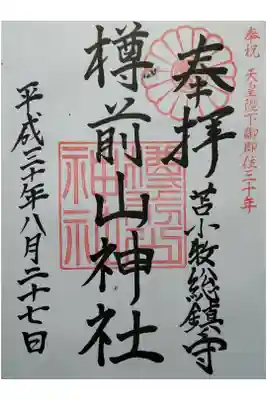 奉祝 天皇陛下御即位三十年
奉拝
苫小牧総鎮守
樽前山神社
平成三十年八月二十七日